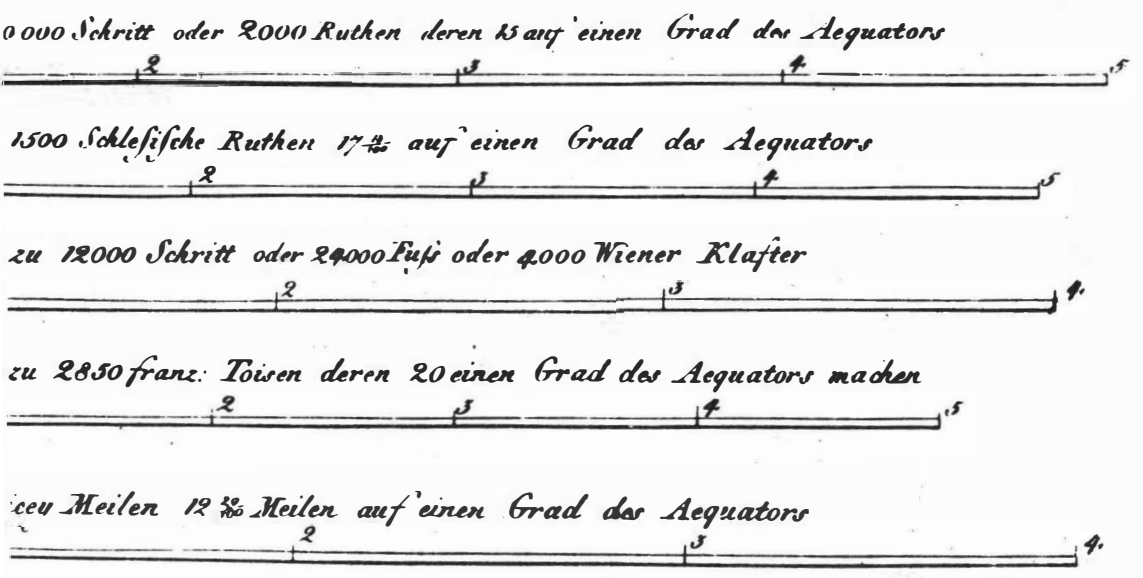 0000 Schritt oder 2000 Ruthen deren 15 auf einen Grad des Aequators
2 3 4 5
1500 Schlesische Ruthen 17 auf einen Grad des Aequators
2 3 4 5
zu 12000 Schritt oder 24000 Fuß oder 4000 Wiener Klafter
2 3 4.
zu 2850 franz: Toisen deren 20 einen Grad des Aequators machen
2 3 4 5
Meilen 12 Meilen auf einen Grad des Aequators
2 3 4.